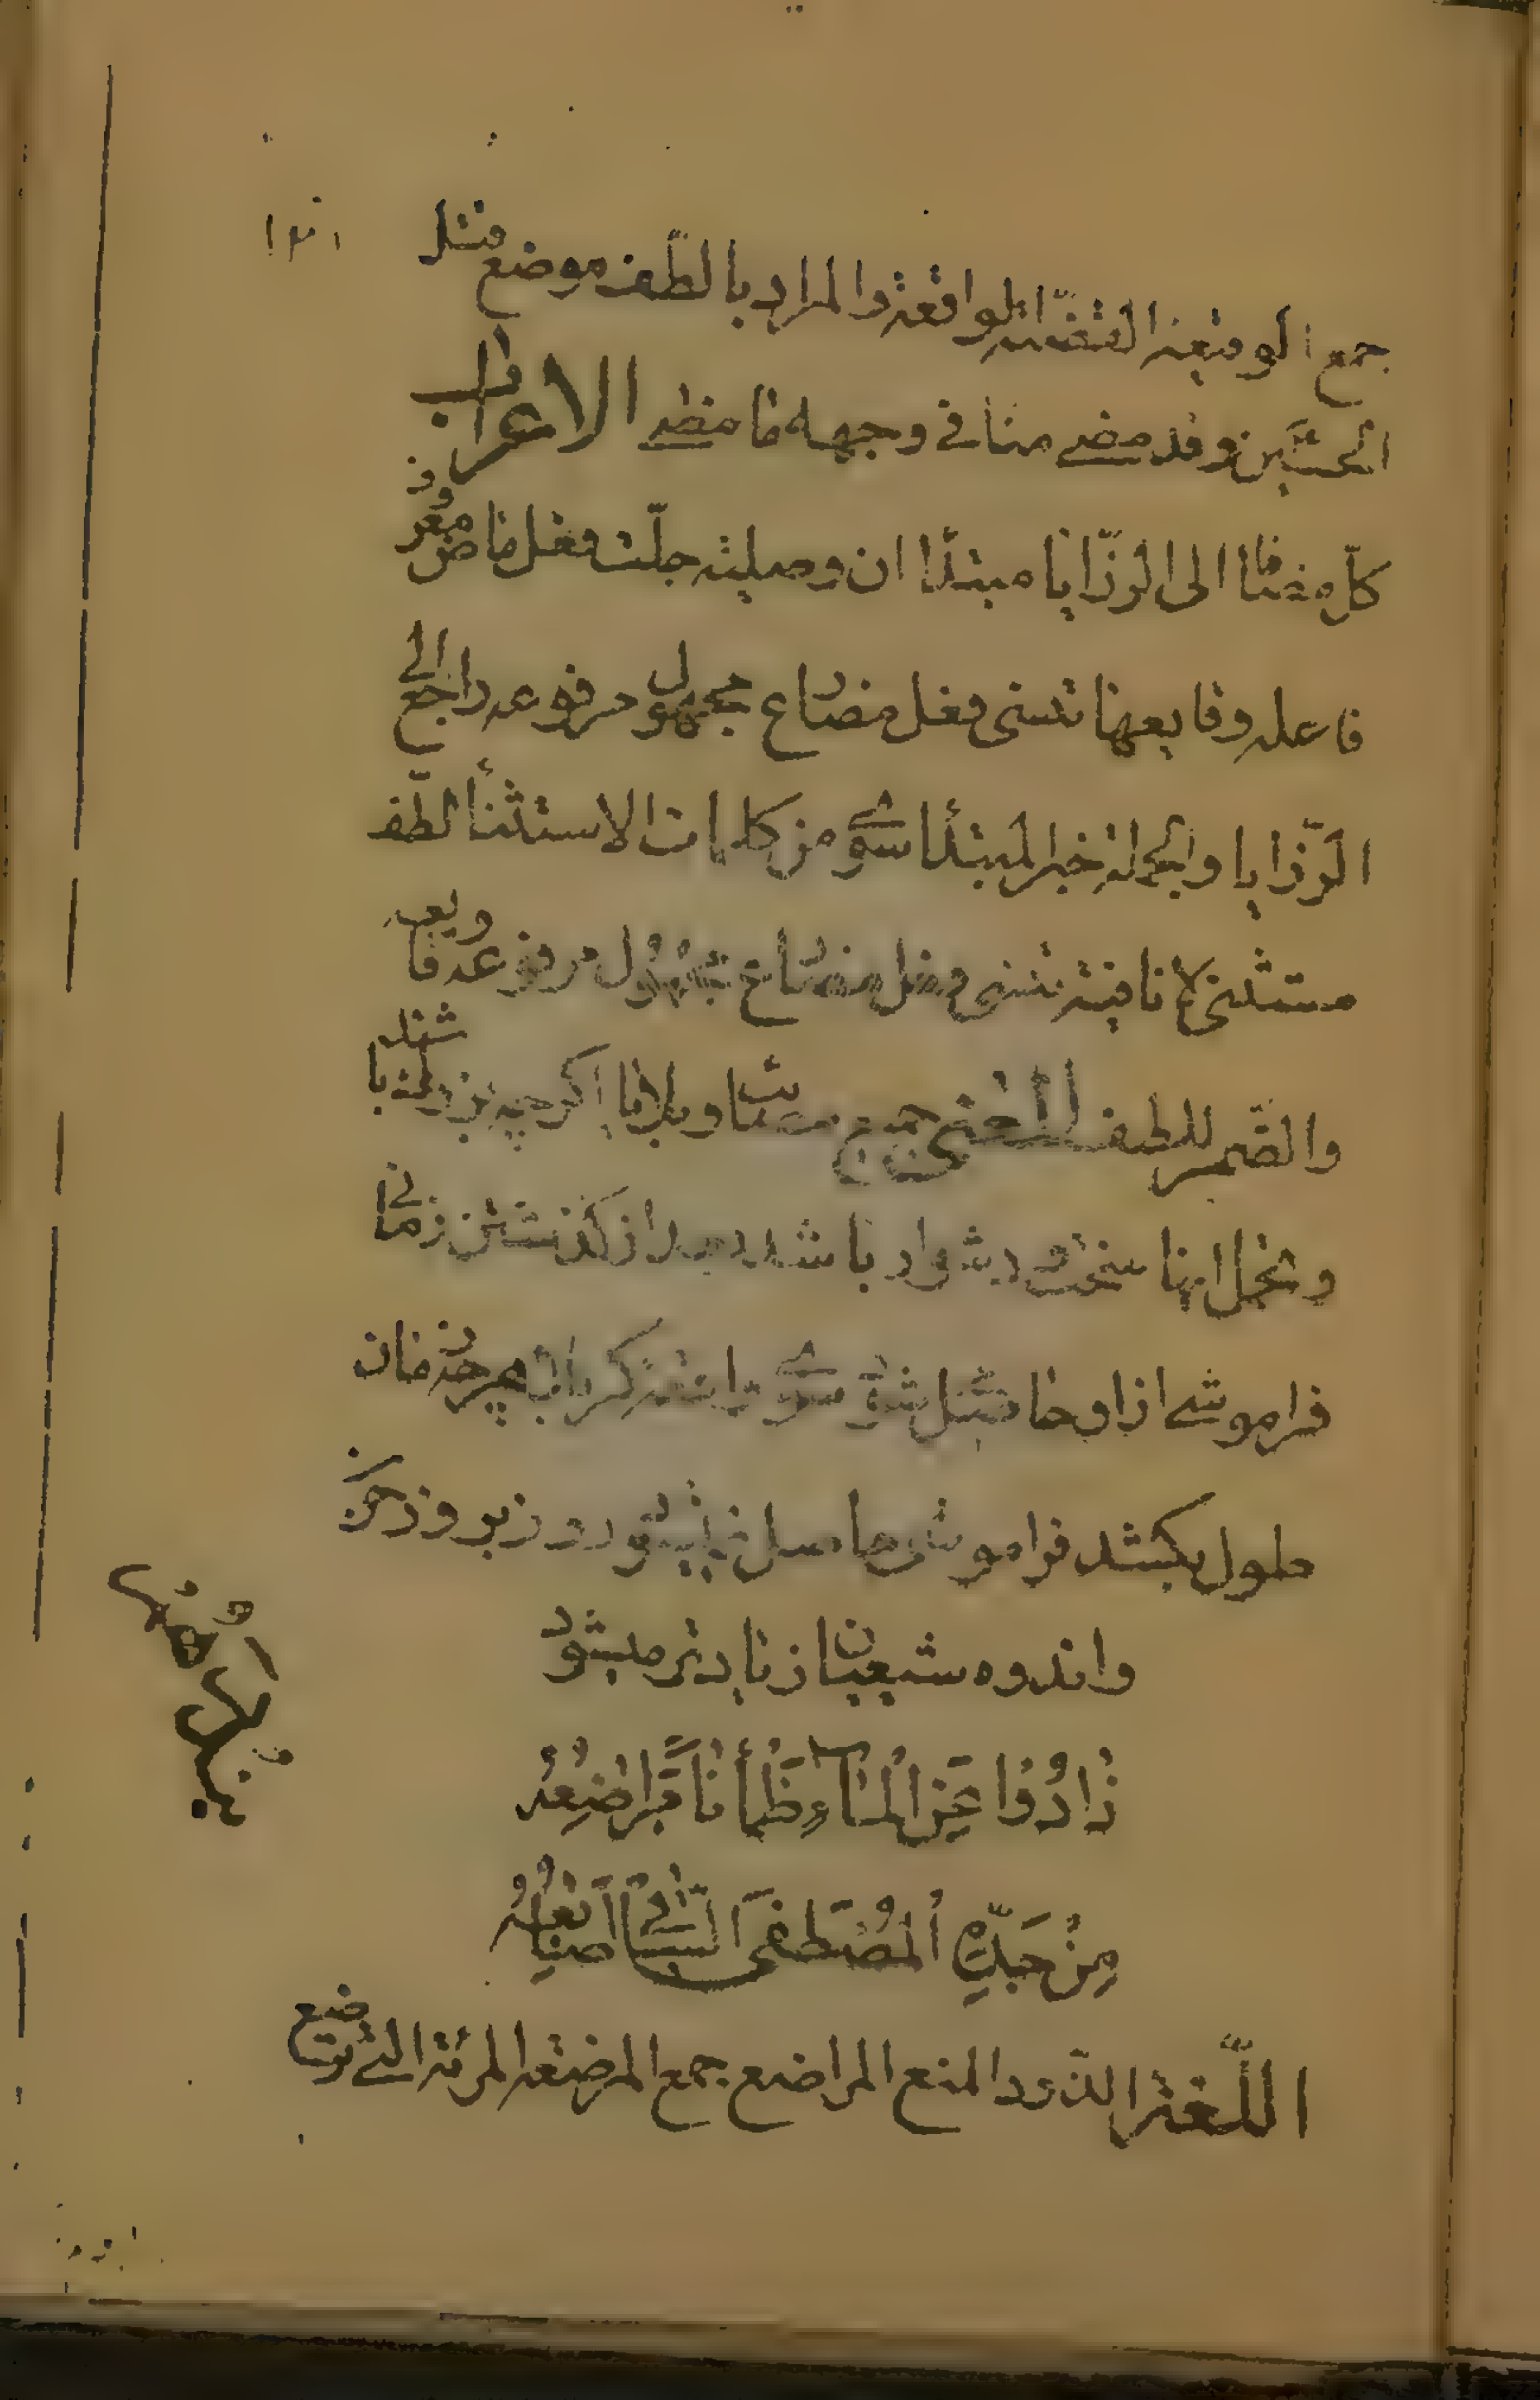 جمع الوقيعة القضية الواقعة والمراد بالطف موضع قتل
الحسين وقد مضى منا في وجهه ما مضى الاعراب
كل مضافا الى الرزايا مبتدا ان وصلية جلت فعل ماض مفرد
فاعله وقايعها تنسى فعل مضارع مجهول مرفوعه راجع الى
الرزايا والجملة خبر المبتدا سوى من كلمات الاستثنا الطف
مستثنى لا نافية تنسى فعل مضارع مجهول مرفوعه وقايعه
والضمير للطف المعنى جميع مصائب وبلاها اگرچه بزرگ باشند
وتحمل اينها سخت ودشوار باشد بعد از گذشتن زمانى
فراموشى از او حاصل شود سوى واقعه كربلا هرچند زمان
طول بكشد فراموشى حاصل نميشود روز بروز حزن
واندوه شيعيان زيادتر ميشود
ذَادُوا عَنِ الْمَاءِ ظَمْأٰنًا مَرَاضِعُهُ
مِنْ جَدِّهِ الْمُصْطَفَى السَّاقِي أَصَابِعُهُ
اللّغة الذود المنع المراضع جمع المرضعة المرئة التى ترضع